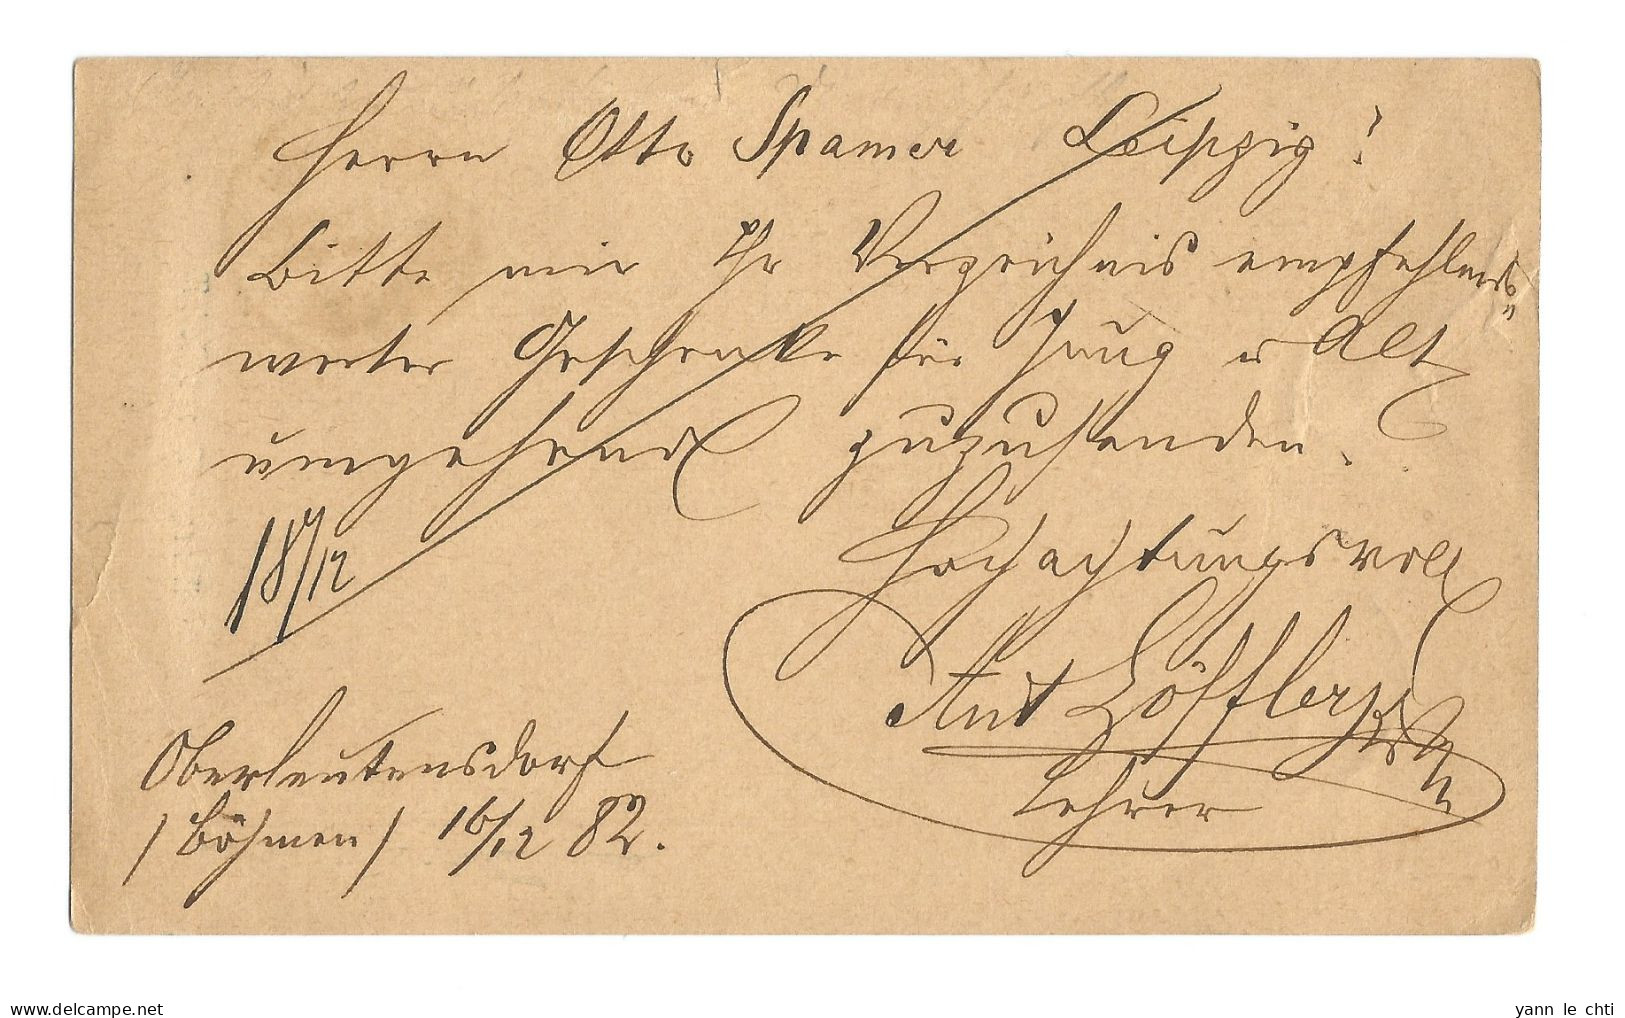 Herrn Otto Spamer Leipzig!
Bitte mir Ihr Verzeichnis empfehlens=
werter Geschenke für Jung u Alt
umgehend zuzusenden.
Hochachtungsvoll
18/12
Ant Löffler
Lehrer
Oberleutensdorf
/Böhmen/ 16/12 82.
www.delcampe.net
yann le chti